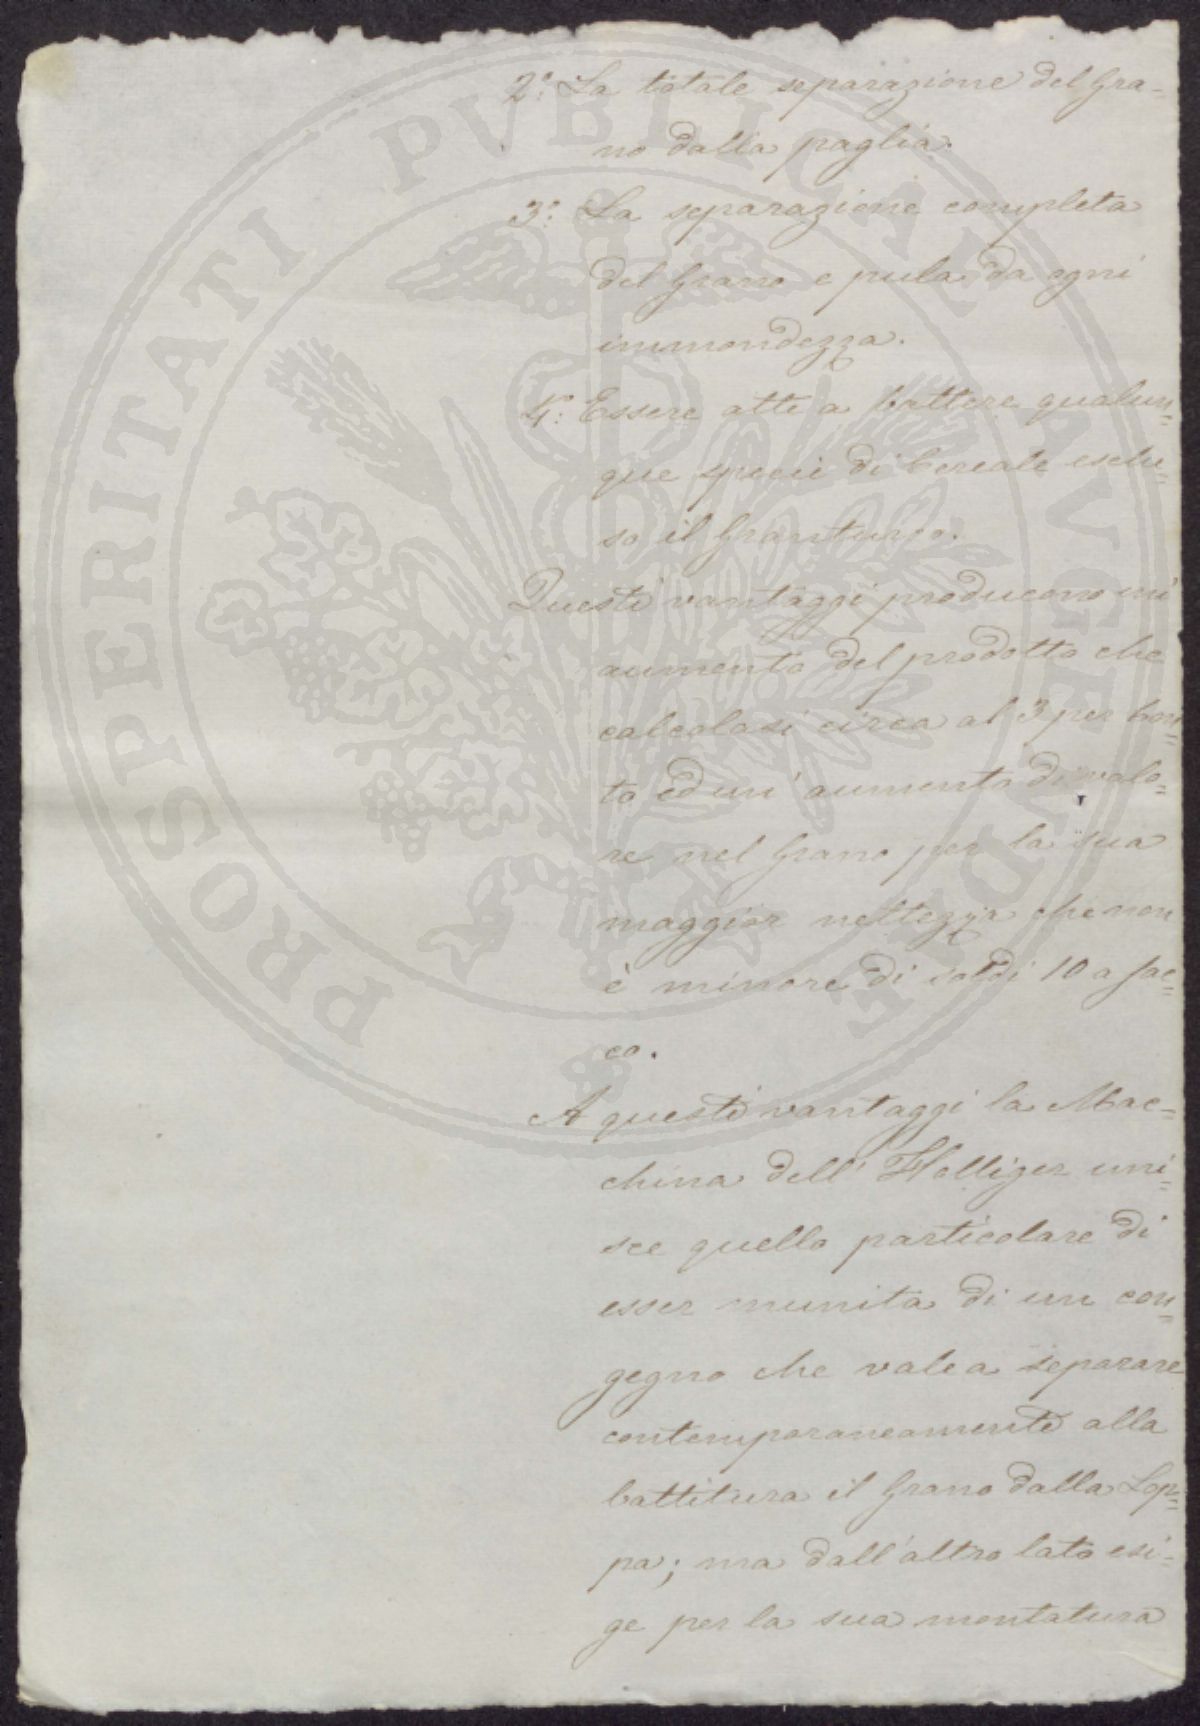 2°: La totale separazione del Gra=
no dalla paglia.
3°: La separazione completa
del Grano e pula da ogni
immondezza.
4°: Essere atte a battere qualun=
que specie di Cereale esclu=
so il Granturco.
Questi vantaggi producono un
aumento del prodotto che
calcolasi circa al 3 per Cen=
to ed un' aumento di valo=
re nel Grano per la sua
maggior nettezza che non
è minore di soldi 10 a sac=
co.
A questi vantaggi la Mac=
china dell' Holliger uni=
sce quello particolare di
esser munita di un con=
gegno che vale a separare
contemporaneamente alla
battitura il Grano dalla Lop=
pa; ma dall'altro lato esi=
ge per la sua montatura
PROSPERITATI PVBLICAE AVGENDAE